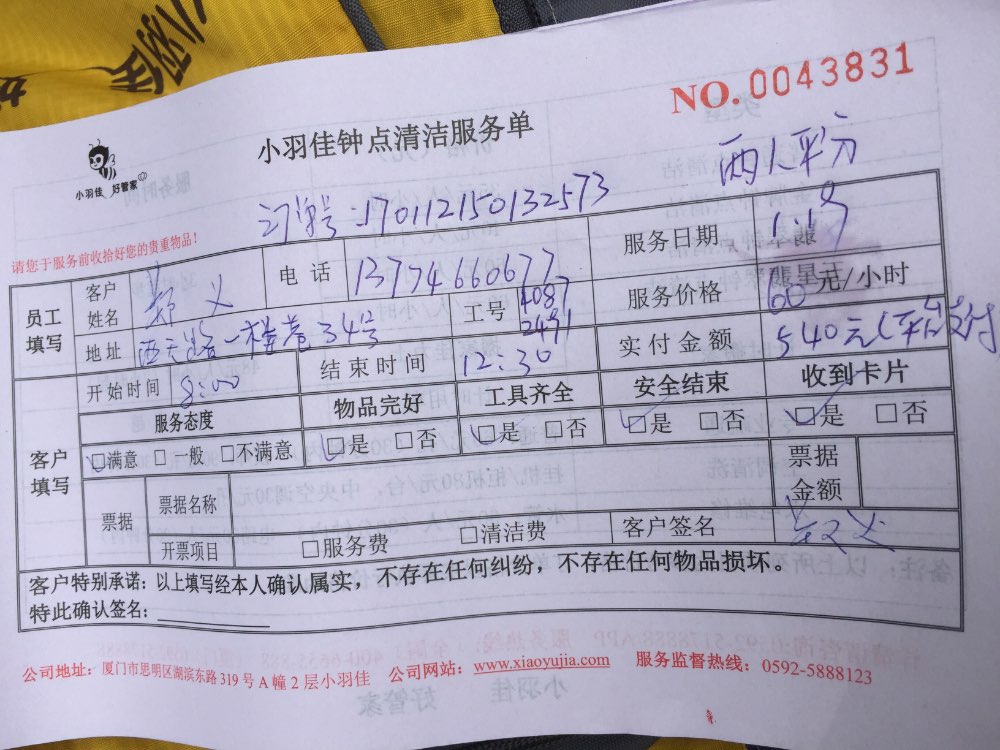 小羽佳
NO.0043831
小羽佳钟点清洁服务单
小羽佳 好管家
两人平分
订单号:170112150132573
请您于服务前收拾好您的贵重物品!
员工填写
客户姓名
电话 13774660677
服务日期
地址 一楼巷34号
工号 4087 2491
服务价格 60元/小时
开始时间 8:00
结束时间 12:30
实付金额 540元(平台支付
客户填写
服务态度 物品完好 工具齐全 安全结束 收到卡片
□满意 □一般 □不满意 □是 □否 □是 □否 □是 □否 □是 □否
票据
票据名称
票据金额
开票项目 □服务费 □清洁费 客户签名
客户特别承诺:以上填写经本人确认属实,不存在任何纠纷,不存在任何物品损坏。
特此确认签名:
公司地址:厦门市思明区湖滨东路319号A幢2层小羽佳 公司网站:www.xiaoyujia.com 服务监督热线:0592-5888123